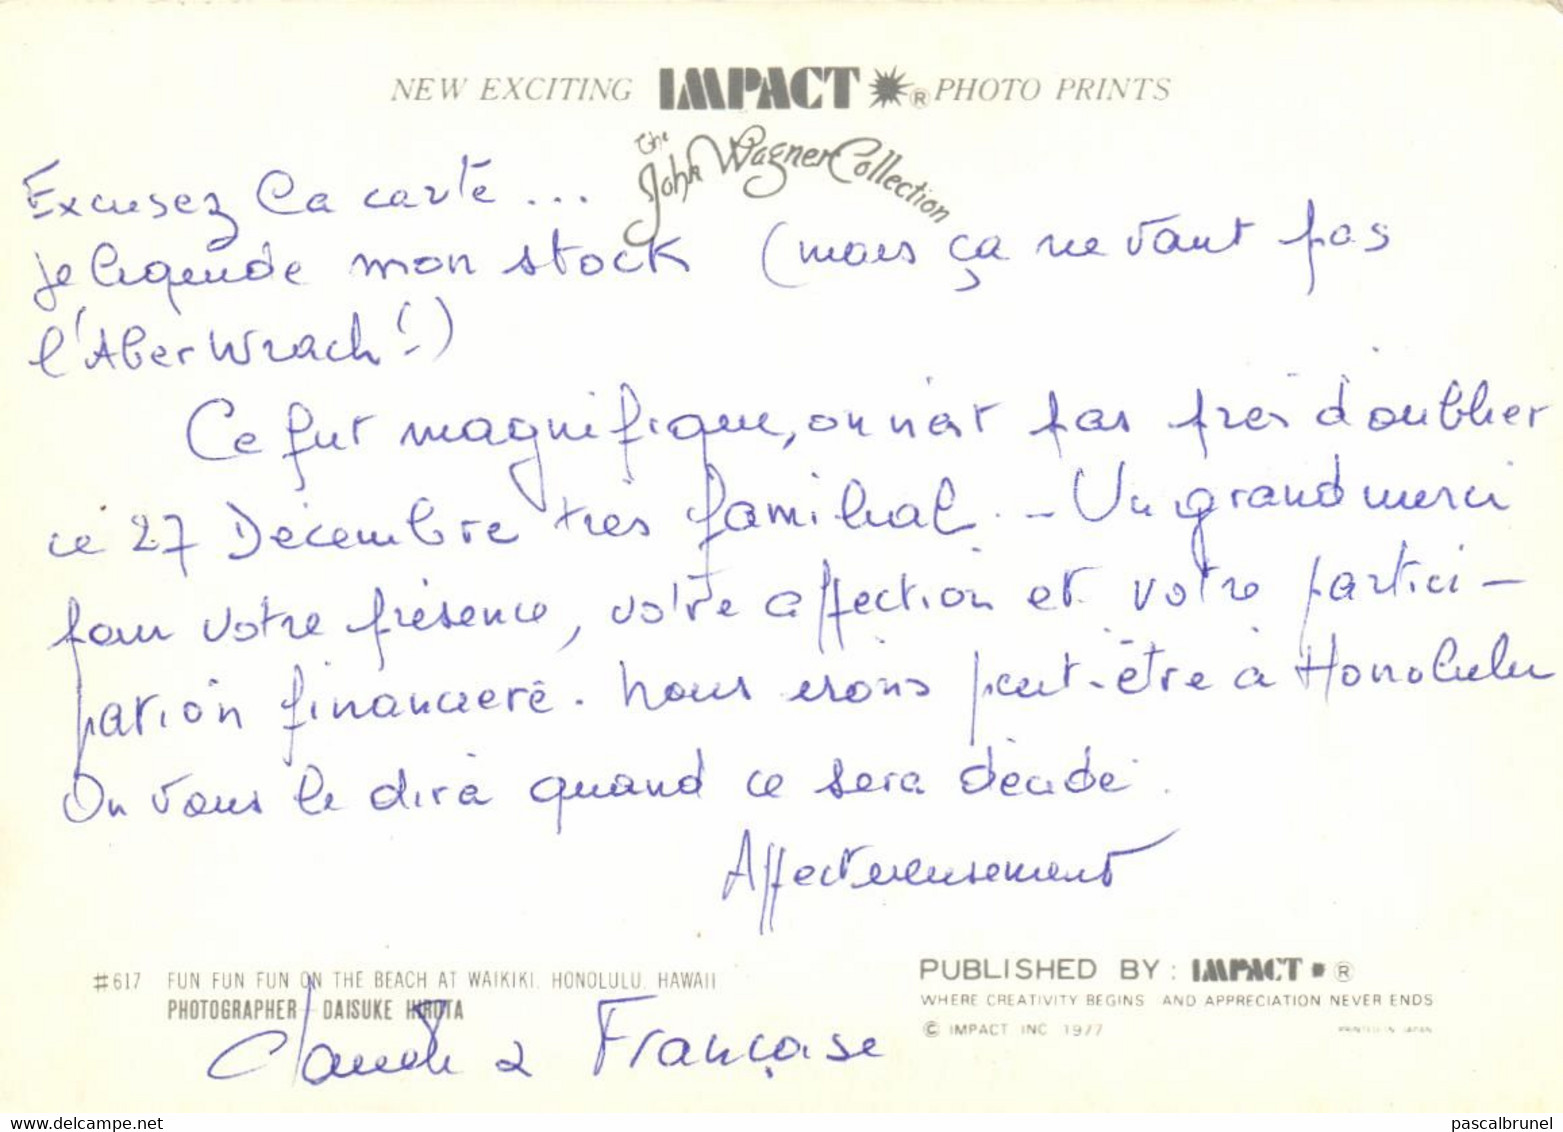 NEW EXCITING IMPACT ® PHOTO PRINTS
The John Wagner Collection
Excusez la carte ...
je liquide mon stock (mais ça ne vaut pas
l'Aber Wrach !)
Ce fut magnifique, on n'est pas près d'oublier
ce 27 Décembre très familial. - Un grand merci
pour votre présence, votre affection et votre partici-
pation financière. Nous irons peut-être à Honolulu
On vous le dira quand ce sera décidé.
Affectueusement
#617 FUN FUN FUN ON THE BEACH AT WAIKIKI, HONOLULU, HAWAII
PHOTOGRAPHER DAISUKE HIROTA
Claude & Françoise
PUBLISHED BY: IMPACT ®
WHERE CREATIVITY BEGINS AND APPRECIATION NEVER ENDS
© IMPACT INC 1977 PRINTED IN JAPAN
pascalbrunel